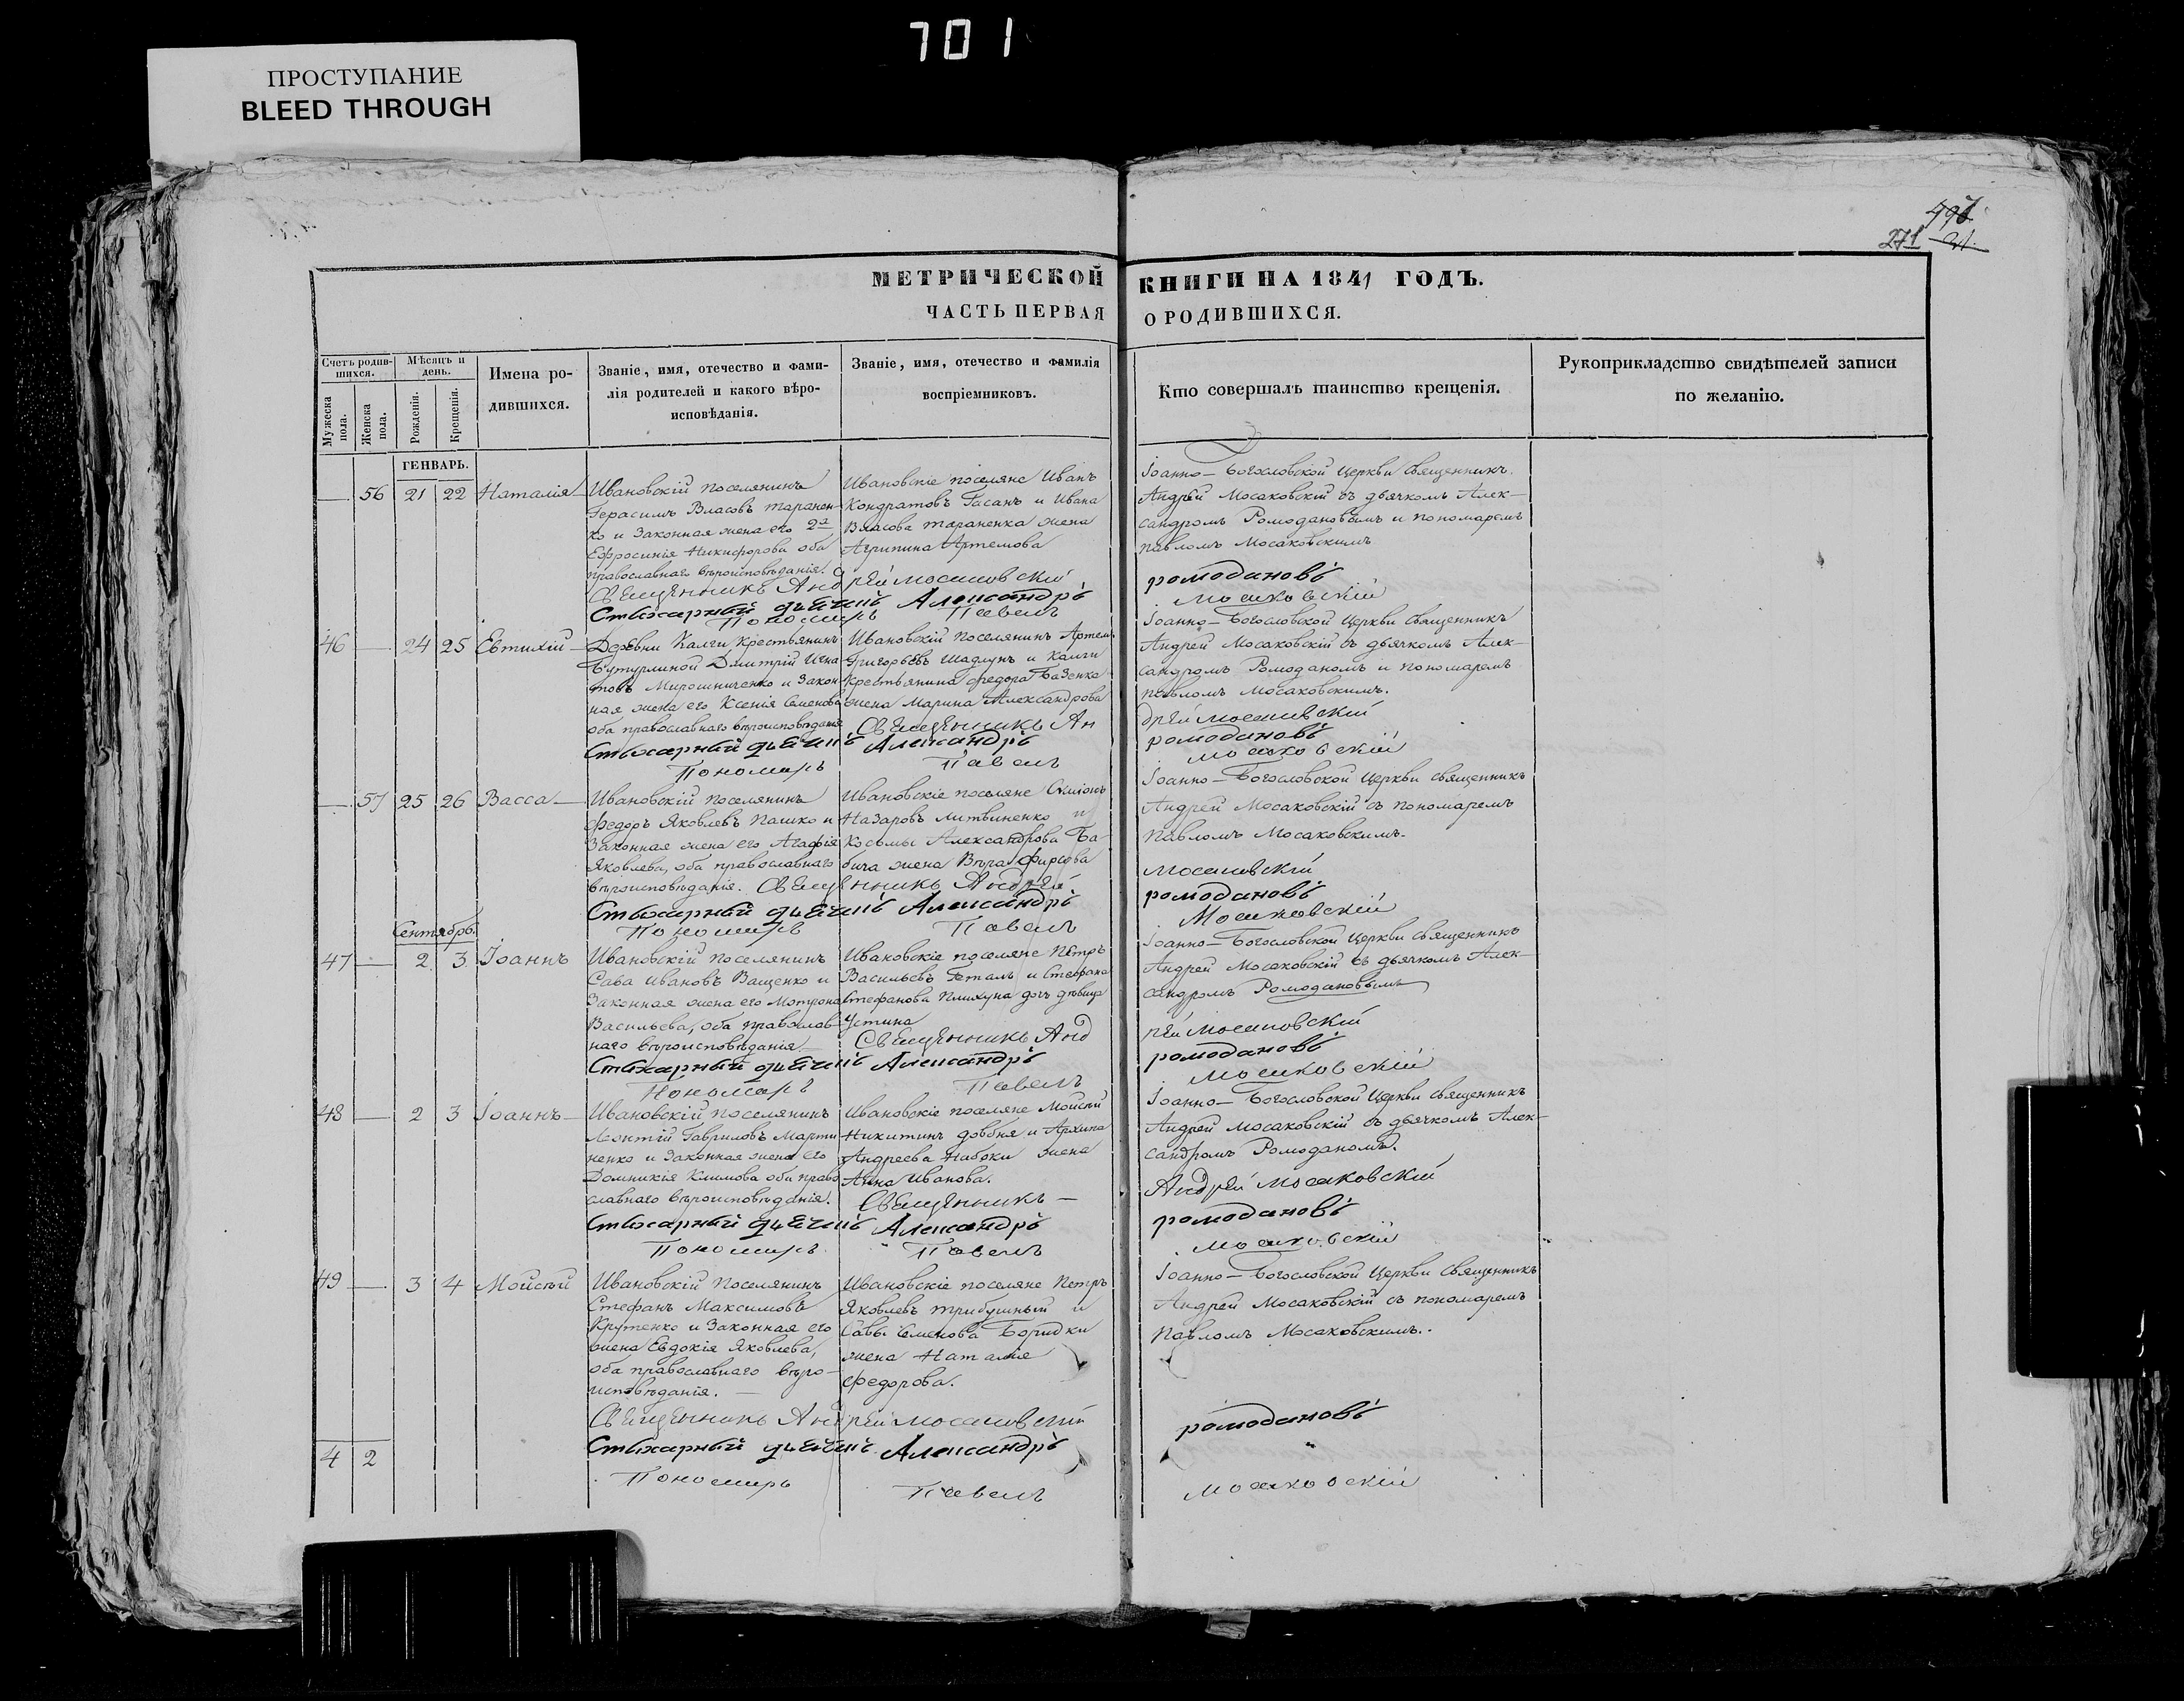 701
ПРОСТУПАНИЕ
BLEED THROUGH
271
МЕТРИЧЕСКОЙ КНИГИ НА 1841 ГОДЪ.
ЧАСТЬ ПЕРВАЯ О РОДИВШИХСЯ.
Счетъ родившихся.
Мужеска пола.
Женска пола.
Мѣсяцъ и день.
Рожденія.
Крещенія.
Имена родившихся.
Званіе, имя, отечество и фамилія родителей и какого вѣроисповѣданія.
Званіе, имя, отечество и фамилія воспріемниковъ.
Кто совершалъ таинство крещенія.
Рукоприкладство свидѣтелей записи по желанію.
ГЕНВАРЬ.
56 21 22 Наталія
Ивановскій поселянинъ
Герасимъ Власовъ Таранен-
ко и Законная жена его 2я
Ефросинія Никифорова оба
православнаго вѣроисповѣданія.
Ивановскіе поселяне Иванъ
Кондратовъ Гасанъ и Ивана
Власова Тараненка жена
Агрипина Артемова
Іоанно-Богословской Церкви Священникъ
Андрей Мосаковскій съ дьячкомъ Алек-
сандромъ Ромодановымъ и пономаремъ
Павломъ Мосаковскимъ
Священникъ Андрей Мосаковскій
Стихарный дьячикъ Александръ Ромодановъ
Пономарь Павелъ Мосаковскій
46 24 25 Евтихій
Деревни Калги Крестьянинъ
Бутурлиной Дмитрій Игна-
товъ Мирошниченко и Закон-
ная жена его Ксенія Семенова
оба православнаго вѣроисповѣданія
Ивановскій поселянинъ Артемъ
Григорьевъ Шадлунъ и Калги
Крестьянина Федора Базенка
жена Марина Александрова
Іоанно-Богословской Церкви Священникъ
Андрей Мосаковскій съ дьячкомъ Алек-
сандромъ Ромоданомъ и пономаремъ
Павломъ Мосаковскимъ.
Священникъ Андрей Мосаковскій
Стихарный дьячикъ Александръ Ромодановъ
Пономарь Павелъ Мосаковскій
57 25 26 Васса
Ивановскій поселянинъ
Федоръ Яковлевъ Пашко и
Законная жена его Агафія
Яковлева, оба православнаго
вѣроисповѣданія.
Ивановскіе поселяне Симіонъ
Назаровъ Литвиненко и
Козьмы Александрова Ба-
бича жена Вѣра Фирсова
Іоанно-Богословской Церкви Священникъ
Андрей Мосаковскій съ пономаремъ
Павломъ Мосаковскимъ.
Священникъ Андрей Мосаковскій
Стихарный дьячикъ Александръ Ромодановъ
Пономарь Павелъ Мосаковскій
Сентябрь.
47 2 3 Іоаннъ
Ивановскій поселянинъ
Сава Ивановъ Ващенко и
Законная жена его Мотрона
Васильева, оба православ-
наго вѣроисповѣданія
Ивановскіе поселяне Петръ
Васильевъ Геталъ и Стефана
Стефанова Плихуна дочь дѣвица
Устина
Іоанно-Богословской Церкви Священникъ
Андрей Мосаковскій съ дьячкомъ Алек-
сандромъ Ромодановымъ
Священникъ Андрей Мосаковскій
Стихарный дьячикъ Александръ Ромодановъ
Пономарь Павелъ Мосаковскій
48 2 3 Іоаннъ
Ивановскій поселянинъ
Леонтій Гавриловъ Марти-
ненко и Законная жена его
Домникія Климова оба право
славнаго вѣроисповѣданія.
Ивановскіе поселяне Мойсѣй
Никитинъ Довбня и Архипа
Андреева Набоки жена
Анна Иванова.
Іоанно-Богословской Церкви Священникъ
Андрей Мосаковскій съ дьячкомъ Алек-
сандромъ Ромоданомъ.
Священникъ Андрей Мосаковскій
Стихарный дьячикъ Александръ Ромодановъ
Пономарь Павелъ Мосаковскій
49 3 4 Мойсѣй
Ивановскій поселянинъ
Стефанъ Максимовъ
Крутенко и Законная его
жена Евдокія Яковлева,
оба православнаго вѣро-
исповѣданія.
Ивановскіе поселяне Петръ
Яковлевъ Трибушный и
Савы Семенова Боридки
жена Наталія
Федорова.
Іоанно-Богословской Церкви Священникъ
Андрей Мосаковскій съ пономаремъ
Павломъ Мосаковскимъ.
Священникъ Андрей Мосаковскій
Стихарный дьячикъ Александръ Ромодановъ
4 2
Пономарь Павелъ Мосаковскій